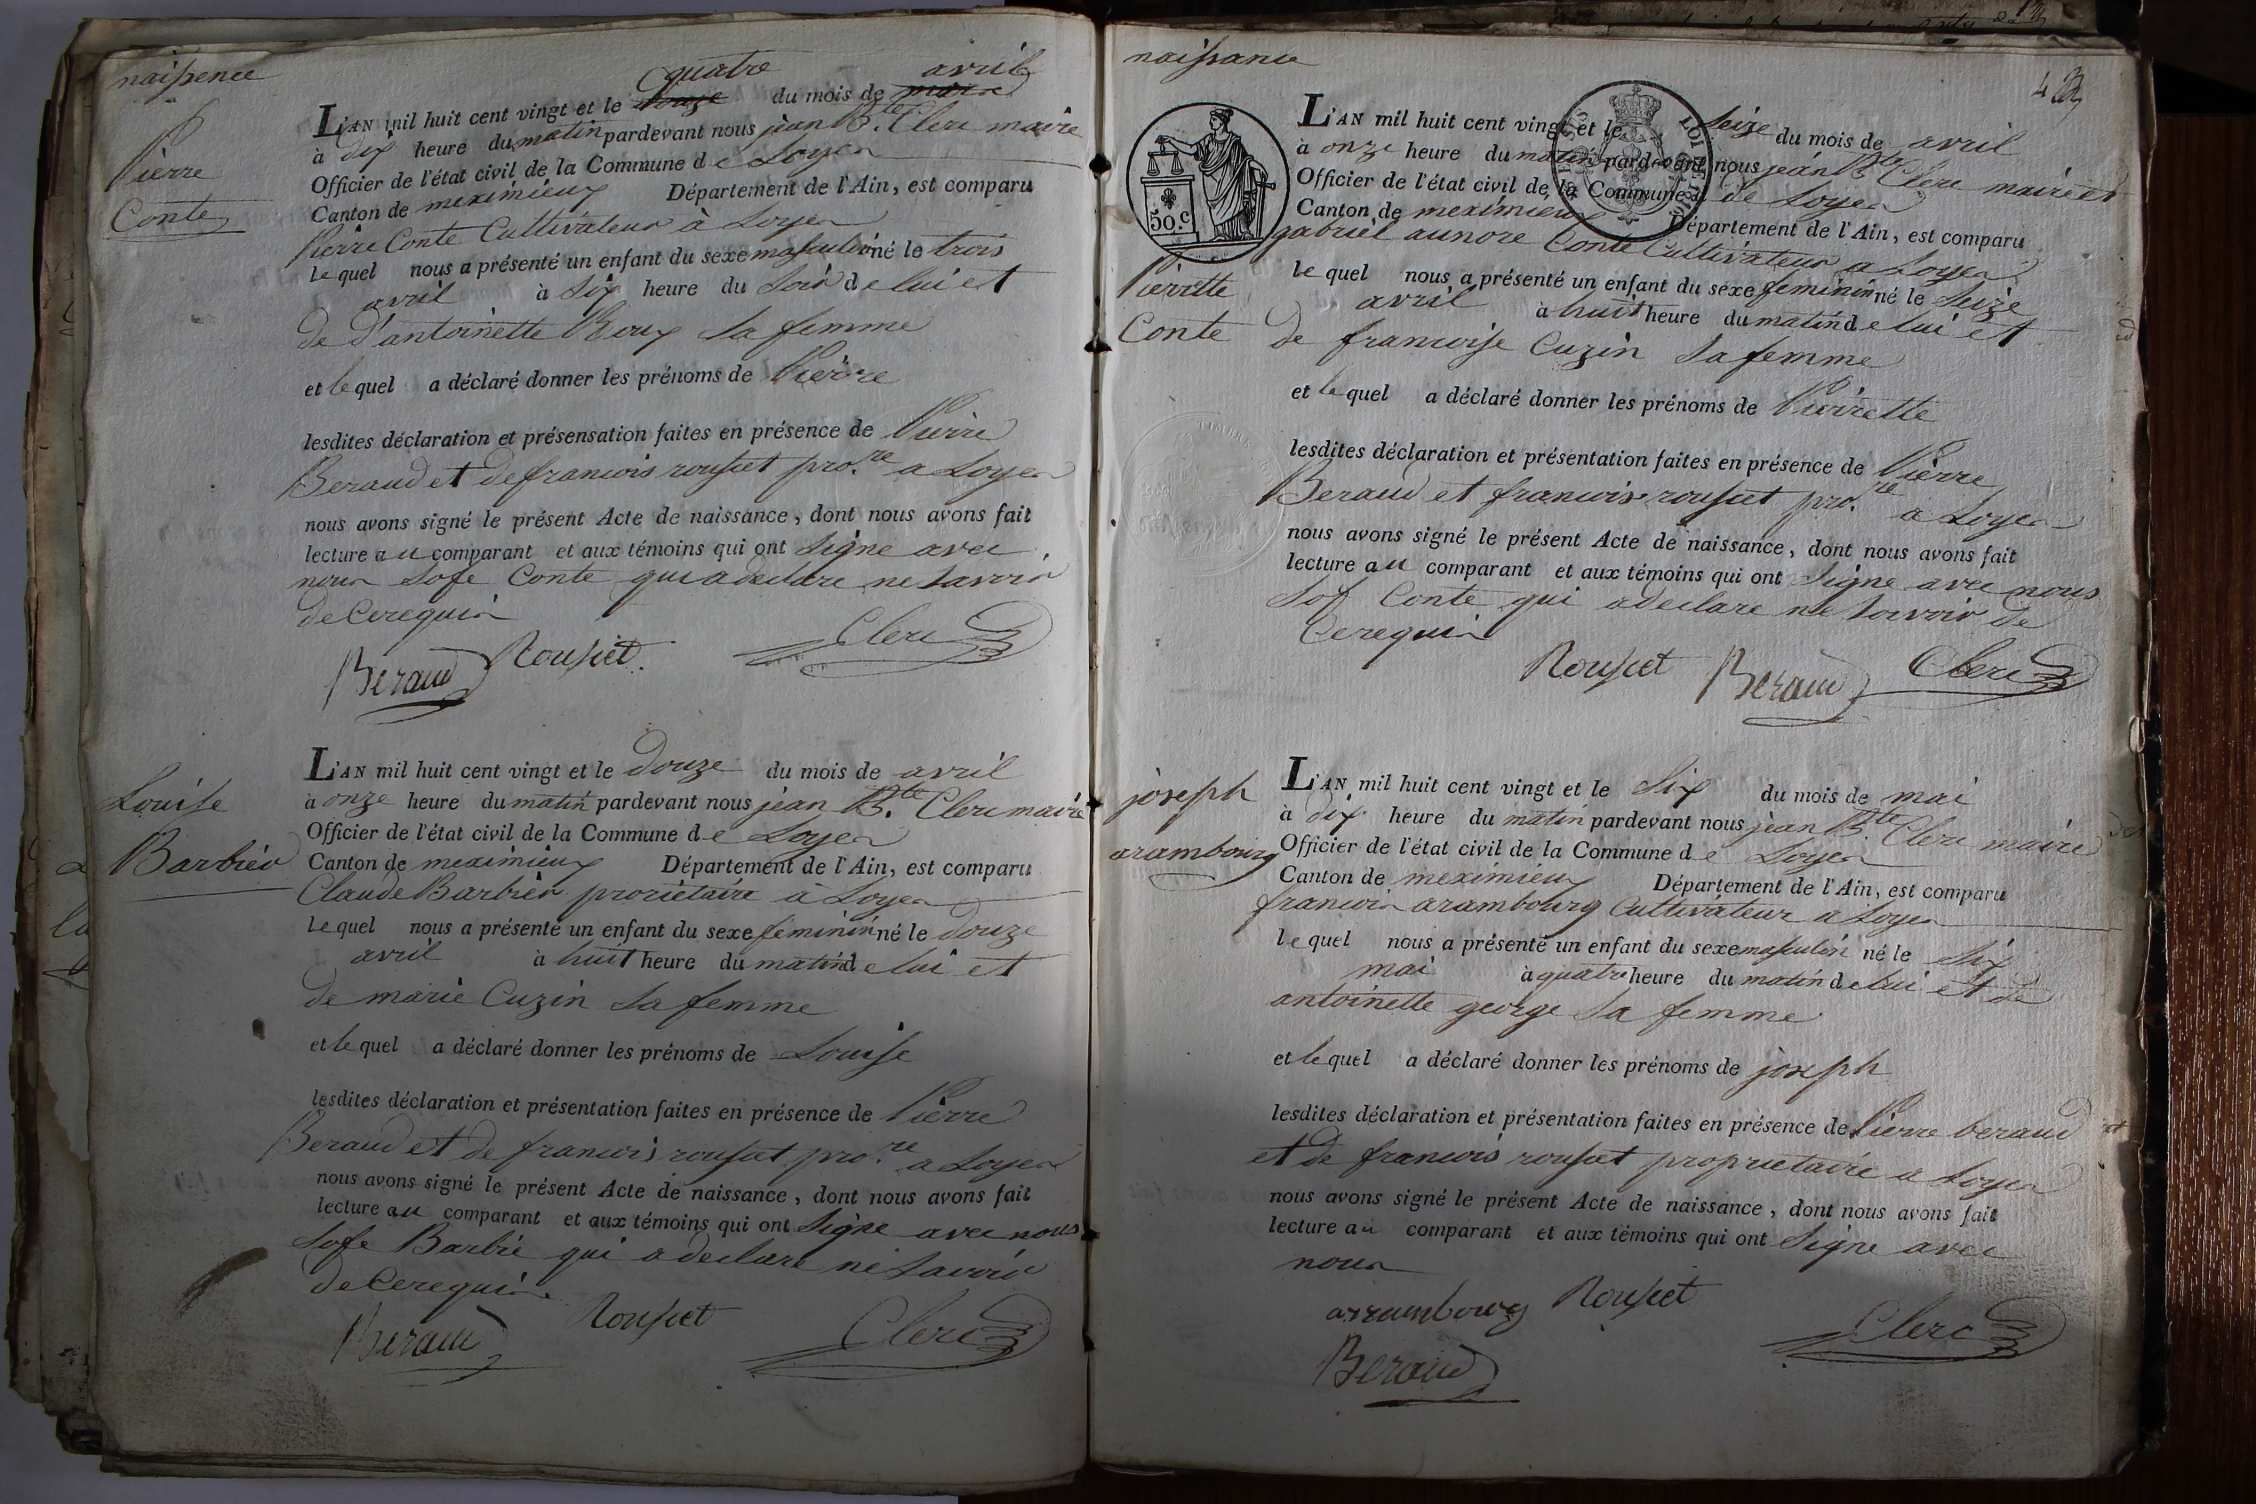 naissence
Pierre
Conte
quatre avril
L'AN mil huit cent vingt et le douze du mois de mars
à dix heure du matin pardevant nous jean Bte. Clerc maire
Officier de l'état civil de la Commune de Loyes
Canton de meximieux Département de l'Ain, est comparu
Pierre Conte Cultivateur à Loyes
lequel nous a présenté un enfant du sexe masculin né le trois
avril à six heure du soir de lui et
de d'antoinette Roux sa femme
et lequel a déclaré donner les prénoms de Pierre
lesdites déclaration et présensation faites en présence de Pierre
Beraud et de francois rousset pro.re a Loyes
nous avons signé le présent Acte de naissance, dont nous avons fait
lecture au comparant et aux témoins qui ont signe avec
nous sofe Conte qui a declare ne savoir
de Cerequis
Beraud Rousset Clerc
Louise
Barbier
L'AN mil huit cent vingt et le douze du mois de avril
à onze heure du matin pardevant nous jean Bte. Clerc maire
Officier de l'état civil de la Commune de Loyes
Canton de meximieux Département de l'Ain, est comparu
Claude Barbier proriètaire à Loyes
lequel nous a présenté un enfant du sexe feminin né le douze
avril à huit heure du matin de lui et
de marie Cuzin sa femme
et lequel a déclaré donner les prénoms de Louise
lesdites déclaration et présentation faites en présence de Pierre
Beraud et de francois rousset pro.re a Loyes
nous avons signé le présent Acte de naissance, dont nous avons fait
lecture au comparant et aux témoins qui ont signe avec nous
sofe Barbie qui a declare ne savoir
de Cerequis
Beraud Rousset Clerc
naissance
50.c
Pierrette
Conte
L'AN mil huit cent vingt et le seize du mois de avril
à onze heure du matin pardevant nous jean Bte Clerc maire et
Officier de l'état civil de la Commune de Loyes
Canton de meximieux Département de l'Ain, est comparu
gabriel aunore Conte Cultivateur a Loyes
lequel nous a présenté un enfant du sexe feminin né le seize
avril à huit heure du matin de lui et
de francoise Cuzin sa femme
et lequel a déclaré donner les prénoms de Pierrette
lesdites déclaration et présentation faites en présence de Pierre
Beraud et francois rousset pro.re a Loyes
nous avons signé le présent Acte de naissance, dont nous avons fait
lecture au comparant et aux témoins qui ont signe avec nous
sof Conte qui a declare ne savoir de
Cerequis
Rousset Beraud Clerc
joseph
arambourg
L'AN mil huit cent vingt et le six du mois de mai
à dix heure du matin pardevant nous jean Bte. Clerc maire
Officier de l'état civil de la Commune de Loyes
Canton de meximieux Département de l'Ain, est comparu
francois arambourg Cultivateur a Loyes
lequel nous a présenté un enfant du sexe masculin né le six
mai à quatre heure du matin de lui et de
antoinette george sa femme
et lequel a déclaré donner les prénoms de joseph
lesdites déclaration et présentation faites en présence de Pierre beraud
et de francois rousset proprietaire a Loyes
nous avons signé le présent Acte de naissance, dont nous avons fait
lecture au comparant et aux témoins qui ont signe avec
nous
arrambourg Rousset Clerc
Beraud